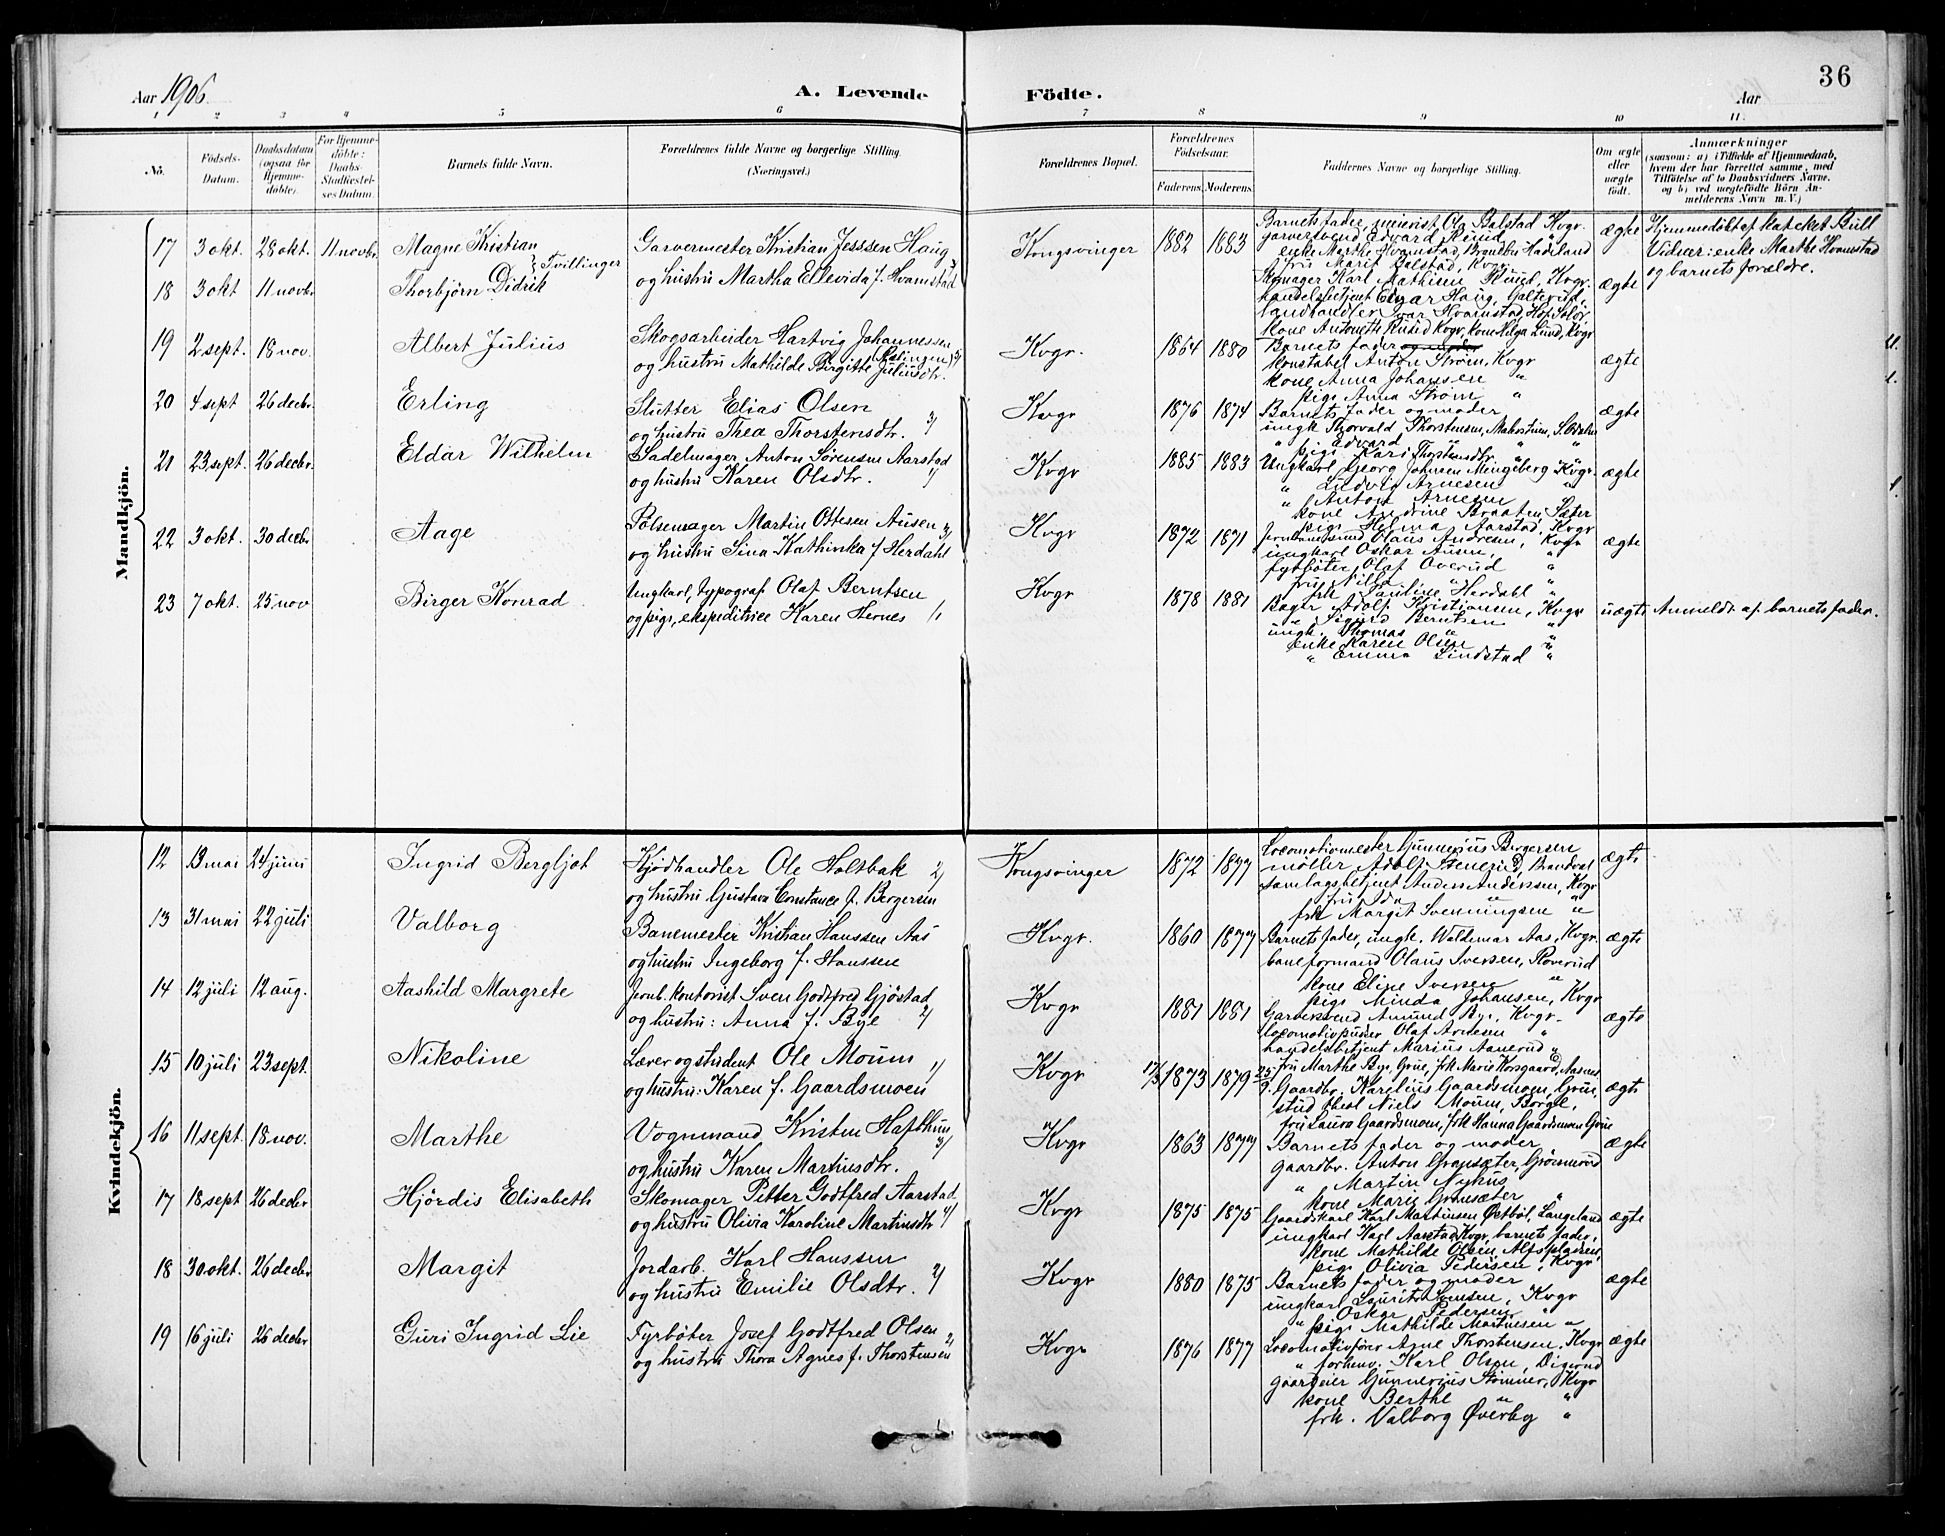 36
Aar 1906.
A. Levende Födte.
Aar
1 2 3 4 5 6 7 8 9 10 11.
No.
Födsels-Datum.
Daabsdatum (ogsaa for Hjemme-döbte).
For Hjemme-döbte: Daabs-Stadfæstel-ses Datum.
Barnets fulde Navn.
Forældrenes fulde Navne og borgerlige Stilling. (Næringsvei.)
Forældrenes Bopæl.
Forældrenes Födselsaar.
Faderens. Moderens.
Faddernes Navne og borgerlige Stilling.
Om ægte eller uægte födt.
Anmærkninger
(saasom: a) i Tilfælde af Hjemmedaab, hvem der har forrettet samme, med Tilföielse af to Daabsvidners Navne, og b) ved uægtefödte Börn An-melderens Navn m. V.)
Mandkjön.
17 3 okt. 28 okt. 11 novbr. Magne Kristian } Tvillinger
Garvermester Kristian Jessen Haug
og hustru Martha Ellevida f. Hvamstad
Kongsvinger 1882 1883
Barnets fader, meierist Ole Balstad Kvgr.
garversvend Edvard Ruud
enke Marthe Hvamstad, Brandbu Hadeland
fru Marie Balstad, Kvgr.
ægte
Hjemmedöbt af kateket Bull
Vidner: enke Marthe Hvamstad
og barnets forældre.
18 3 okt 11 novbr. Thorbjörn Didrik
Skomager Karl Mathisen Ruud, Kvgr.
handelsbetjent Edvar Haug, Galterud,
landhandler Ivar Hvamstad, Hof Solör
kone Antonette Ruud Kvgr, kone Helga Lund, Kvgr
ægte
19 2 sept. 18 nov. Albert Julius
Skogsarbeider Hartvig Johannessen
og hustru Mathilde Birgitte Juliusdtr.
Kvgr. 1864 1880
Barnets fader og moder
konstabel Anton Ström, Kvgr
kone Anna Johansen "
pige Anna Ström "
ægte
20 4 sept 26 decbr. Erling
Slutter Elias Olsen
og hustru Thea Thorstensdtr. 3/
Kvgr 1876 1874
Barnets fader og moder
ungk Thorvald Thorstensen, S. Odalen
" Edvard " " "
pige Kari Thorstensdtr. "
ægte
21 23 sept. 26 decbr. Eldar Wilhelm
Sadelmager Anton Sörensen Aarstad
og hustru Karen Olsdtr. 1/
Kvgr 1885 1883
Ungkarl Georg Johnsen Mingeberg Kvgr.
" Ludvig Arnesen "
" Anton Arnesen
kone Andrine Braaten, Sæter
pige Helma Aarstad, Kvgr
ægte
22 3 okt. 30 decbr Aage
Pölsemager Martin Ottesen Ausen 3/
og hustru Sina Kathinka f. Herdahl
Kvgr 1872 1871
Olaus Andresen, Kvgr
ungkarl Oskar Ausen, "
fyrböter Olaf Overud "
fru Nilla " "
frk Pauline Herdahl "
ægte
23 7 okt. 25 nov Birger Konrad
Ungkarl, typograf Olaf Berntsen
og pige, ekspeditrice Karen Hernes 1/1
Kvgr 1878 1881
Bager Adolf Kristiansen, Kvgr
" Sigurd Berntsen "
ungk. Thomas " "
enke Karen Olsen "
" Emma Lindstad "
uægte Anmeldt af barnets fader.
Kvindekjön.
12 13 mai 24 juni Ingrid Bergljot
Kjödhandler Ole Holtbak 2/
og hustru Gustava Constance f. Bergersen
Kongsvinger 1872 1877
Locomotivmester Gunnerius Bergersen
möller Adolf Stenerud, Brandval
samlagsbetjent Anders Andersen, Kvgr
fru Ida " "
frk Margit Svenningsen "
ægte
13 31 mai 22 juli Valborg
Banemester Kristian Hanssen Aas
og hustru Ingeborg f. Hanssen
Kvgr. 1860 1877
Barnets fader, ungk. Waldemar Aas, Kvgr.
baneformand Olaus Iversen, Roverud
kone Eline Iversen "
pige Minda Johansen, Kvgr
ægte
14 12 juli 12 aug. Aashild Margrete
Jernb. kontorist Sven Godtfred Gjöstad
og hustru: Anna f. Bye 2/
Kvgr 1881 1881
Garversvend Amund Bye, Kvgr.
Locomotivpudser Olaf Arnesen "
handelsbetjent Marius Aanerud "
fru Marthe Bye, Grue, frk Marie Korsgaard, Aasnes
ægte
15 10 juli 23 sept. Nikoline
Lærer og student Ole Moum 1/
og hustru: Karen f. Gaardsmoen
Kvgr 17/5 1873 1879 25/9
Gaardbr. Karelius Gaardsmoen, Grue
stud Niels Moum, Borge,
fru Laura Gaardsmoen, frk Hanna Gaardsmoen Grue
ægte
16 11 sept. 18 nov. Marthe
Vognmand Kristen Hafthun
og hustru Karen Martinsdtr.
Kvgr 1863 1877
Barnets fader og moder
gaardbr. Anton Gransæter, Grönnerud
" Martin Nyhus
kone Marie Gransæter "
ægte
17 18 sept 26 decbr Hjördis Elisabeth
Skomager Petter Godtfred Aarstad
og hustru Olivia Karoline Martinsdtr 4/
Kvgr 1875 1875
Gaardskarl Karl Martinsen Östböl, Langeland
ungkarl Karl Aarstad Kvgr, barnets fader,
kone Mathilde Olsen,
pige Olivia Pedersen, Kvgr
ægte
18 30 okt. 26 decbr Margit
Jordarb. Karl Hanssen
og hustru Emilie Olsdtr. 2/
Kvgr 1880 1875
Barnets fader og moder
ungkarl Laurits Svensen, Kvgr
" Oskar Pedersen "
pige Mathilde Martinsen "
ægte
19 16 juli 26 decbr Guri Ingrid Lie
Fyrböter Josef Godtfred Olsen
og hustru Thora Agnes f. Thorstensen
Kvgr 1876 1877
Locomotivförer Arne Thorstensen, Kvgr
" forhenv. Karl Olsen, Digerud
gaardeier Gunnerius Stömner, Kvgr
kone Berthe " "
frk. Valborg Överby "
ægte